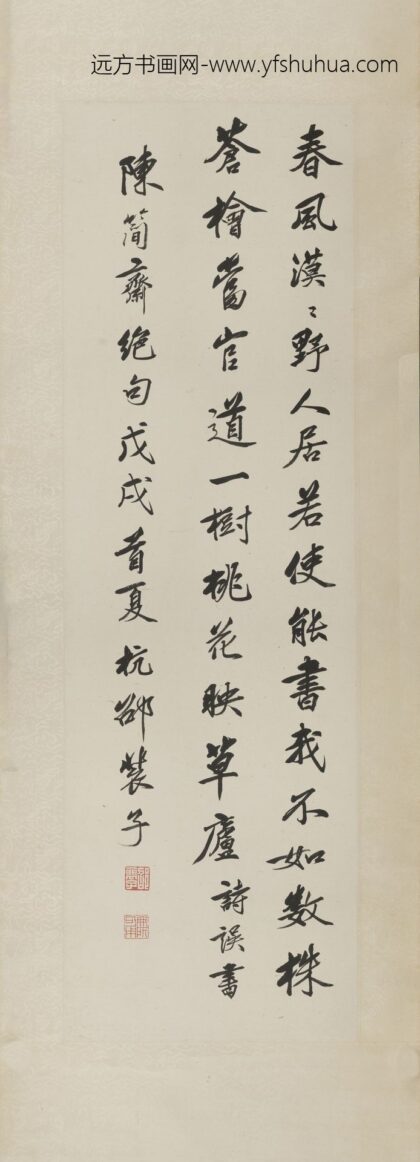 远方书画网-www.yfshuhua.com
春風漠〻野人居若使能書我不如数株
蒼檜當官道一樹桃花映草廬詩誤書
陳簡齋絕句戊戌首夏杭邵裴子